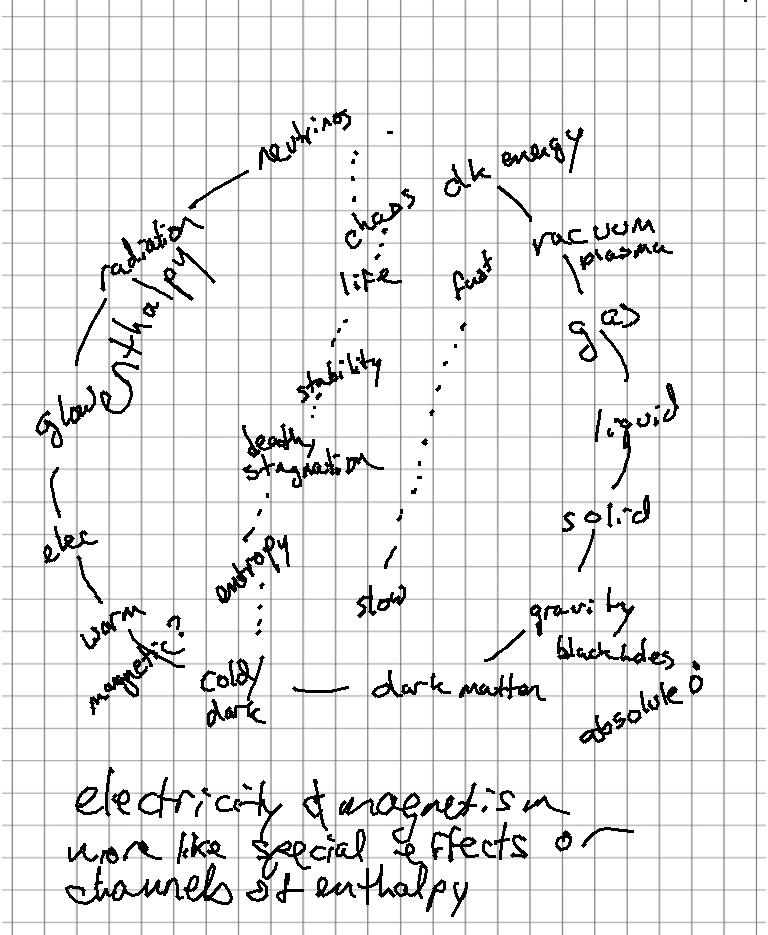 neutrinos
dk energy
radiation
chaos
vacuum
plasma
life
fast
enthalpy
gas
stability
glow
liquid
death,
stagnation
solid
elec
entropy
slow
warm
gravity
magnetic?
black holes
cold/
dark
dark matter
absolute 0
electricity & magnetism
more like special effects or
channels of enthalpy